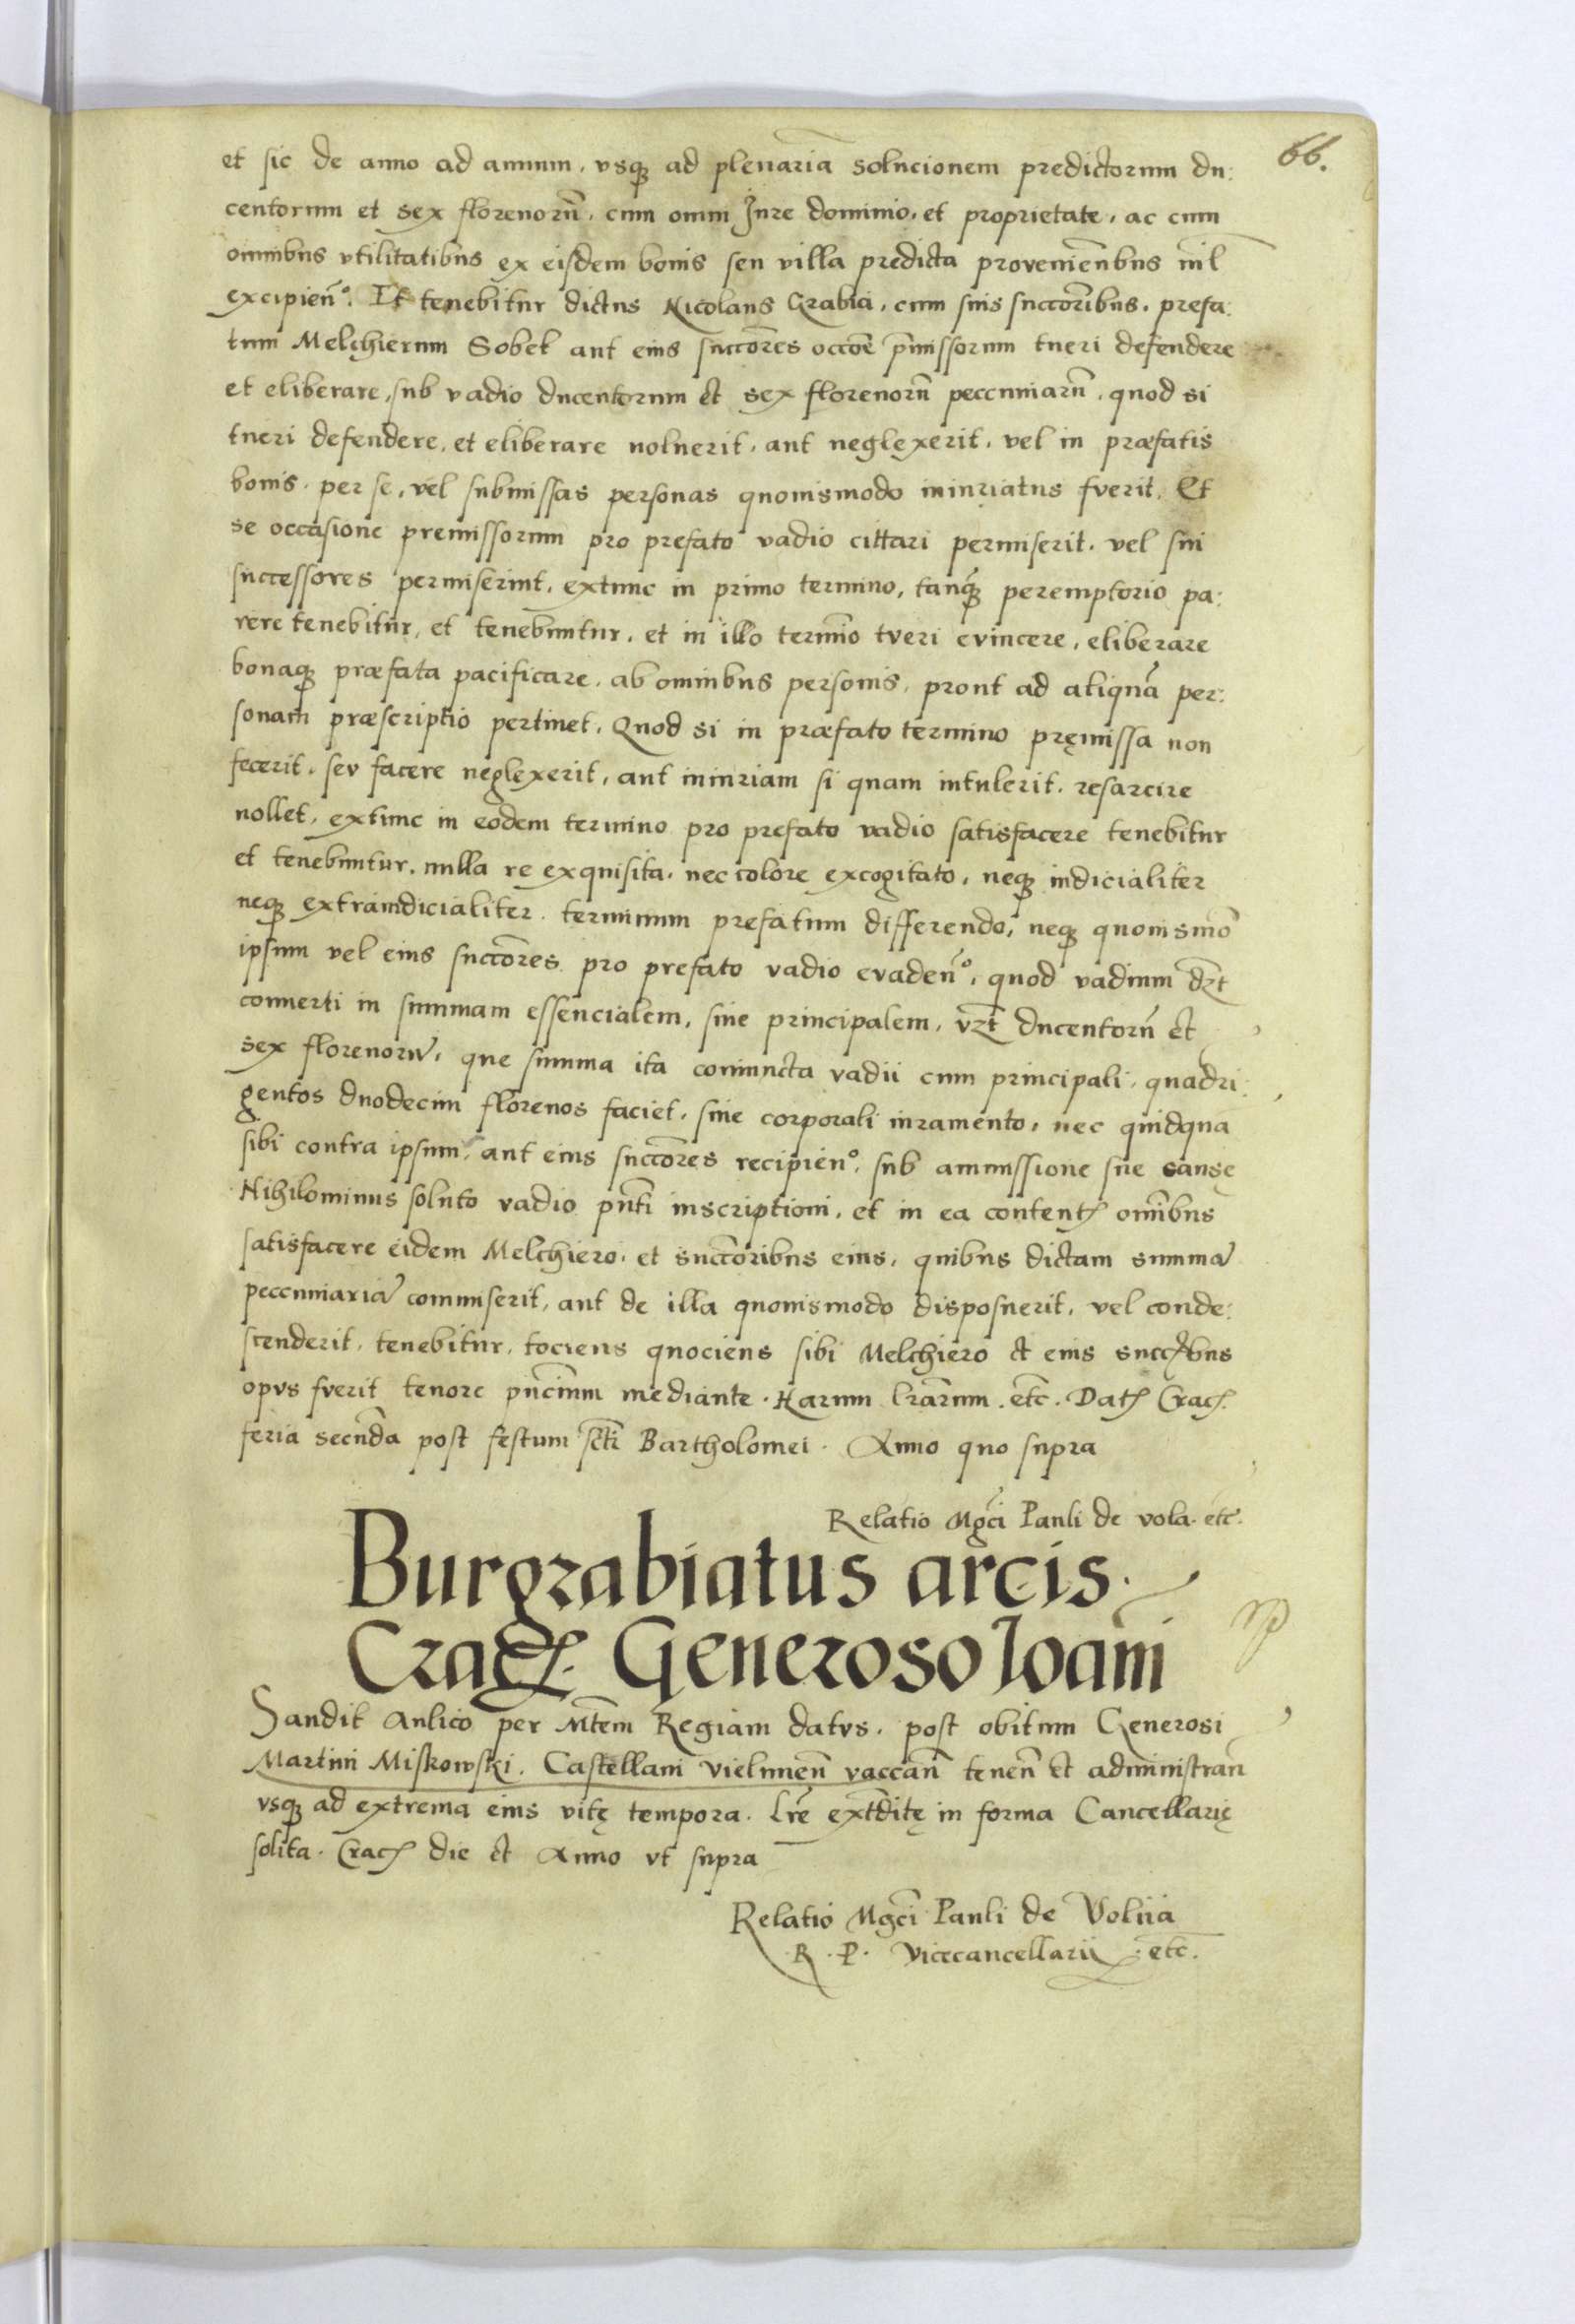 66.
et sic de anno ad annum, vsq₃ ad plenariā solucionem predictorum du:
centorum et sex florenorū, cum omni Jure dominio, et proprietate, ac cum
omnibus vtilitatibus ex eisdem bonis seu villa predicta provenienībus nil
excipienº. Et tenebitur dictus Nicolaus Grabia, cum suis succōribus, prefa:
tum Melchierum Sobek aut eius succōres occōe p̄missorum tueri defendere
et eliberare, sub vadio ducentorum et sex florenorū peccuniarū, quod si
tueri defendere, et eliberare noluerit, aut neglexerit, vel in præfatis
bonis, per se, vel submissas personas quouismodo iniuriatus fverit, Et
se occasione premissorum pro prefato vadio cittari permiserit, vel sui
successores permiserint, extunc in primo termino, tanq₃ peremptorio pa:
rere tenebitur, et tenebuntur, et in illo termīo tveri evincere, eliberare
bonaq₃ præfata pacificare, ab omnibus personis, prout ad aliquā per:
sonam præscriptio pertinet, Quod si in præfato termino pręmissa non
fecerit, sev facere neglexerit, aut iniuriam si quam intulerit, resarcire
nollet, extunc in eodem termino pro prefato vadio satisfacere tenebitur
et tenebuntur, nulla re exquisita, nec colore excogitato, neq₃ iudicialiter
neq₃ extraiudicialiter, terminum prefatum differendo, neq₃ quouismō
ipsum vel eius succōres pro prefato vadio evadenº, quod vadium dȝt
conuerti in summam essencialem, siue principalem, vȝt ducentorū et
sex florenorū, que summa ita coniuncta vadii cum principali, quadri:
gentos duodecim florenos faciet, sine corporali iuramento, nec quidquā
sibi contra ipsum, aut eius succōres recipienº, sub ammissione sue causę
Nihilominus soluto vadio pn̄ti inscriptioni, et in ea content₎ omībus
satisfacere eidem Melchiero, et succōribus eius, quibus dictam summā
peccuniariā commiserit, aut de illa quouismodo disposuerit, vel conde:
scenderit, tenebitur, tociens quociens sibi Melchiero et eius succ₎ībus
opvs fverit tenore pn̄cium mediante. Harum lrārum. etc̄. Dat₎ Crac₎
feria secūda post festum sc̄ti Bartholomei. Anno quo supra
Relatio Mgc̄i Pauli de vola. etc̄.
Burgrabiatus arcis
Crac₎. Generoso Ioan̄i
Bandit Aulico per Mtēm Regiam datvs, post obitum Generosi
Martini Miskowski. Castellani vielunen̄ vaccan̄ tenen̄ et administran̄
vsq₃ ad extrema eius vitę tempora. Lrē extditę in forma Cancellarię
solita. Crac₎ die et Anno vt supra
Relatio Mgc̄i Pauli de Volija
R. P. Vicecancellarii. etc̄.